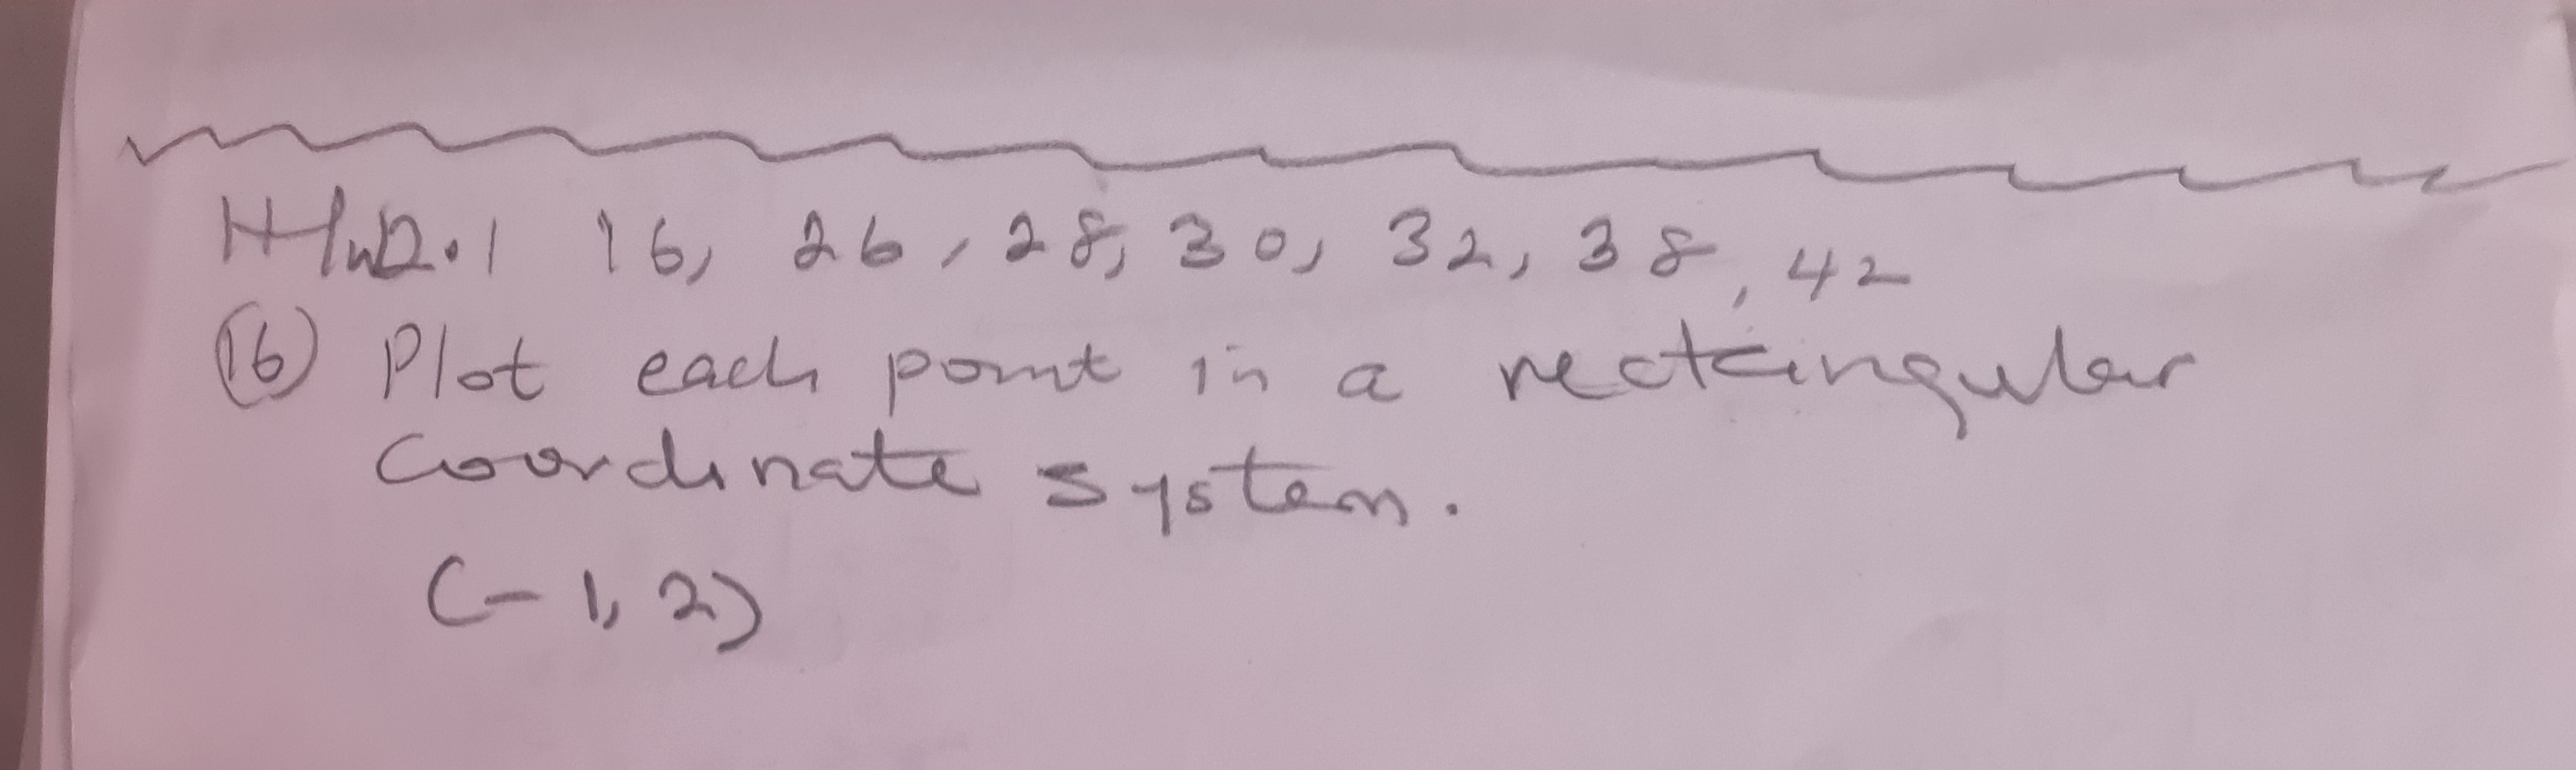 H/w2.1 16, 26, 28, 30, 32, 38, 42
(16) Plot each point in a rectangular
coordinate system.
(-1, 2)